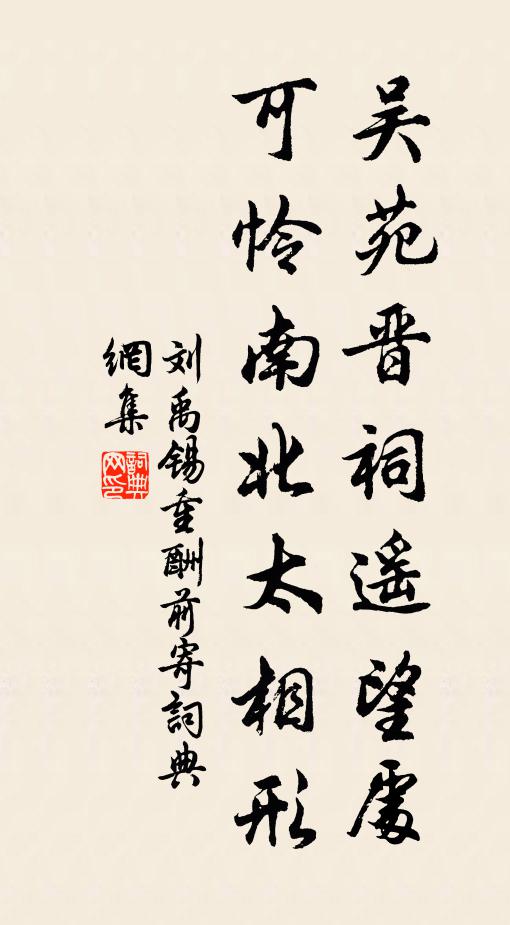 吴苑晋祠遥望處
可怜南北太相形
刘禹锡重酬前寄詞典
網集
詞典网印